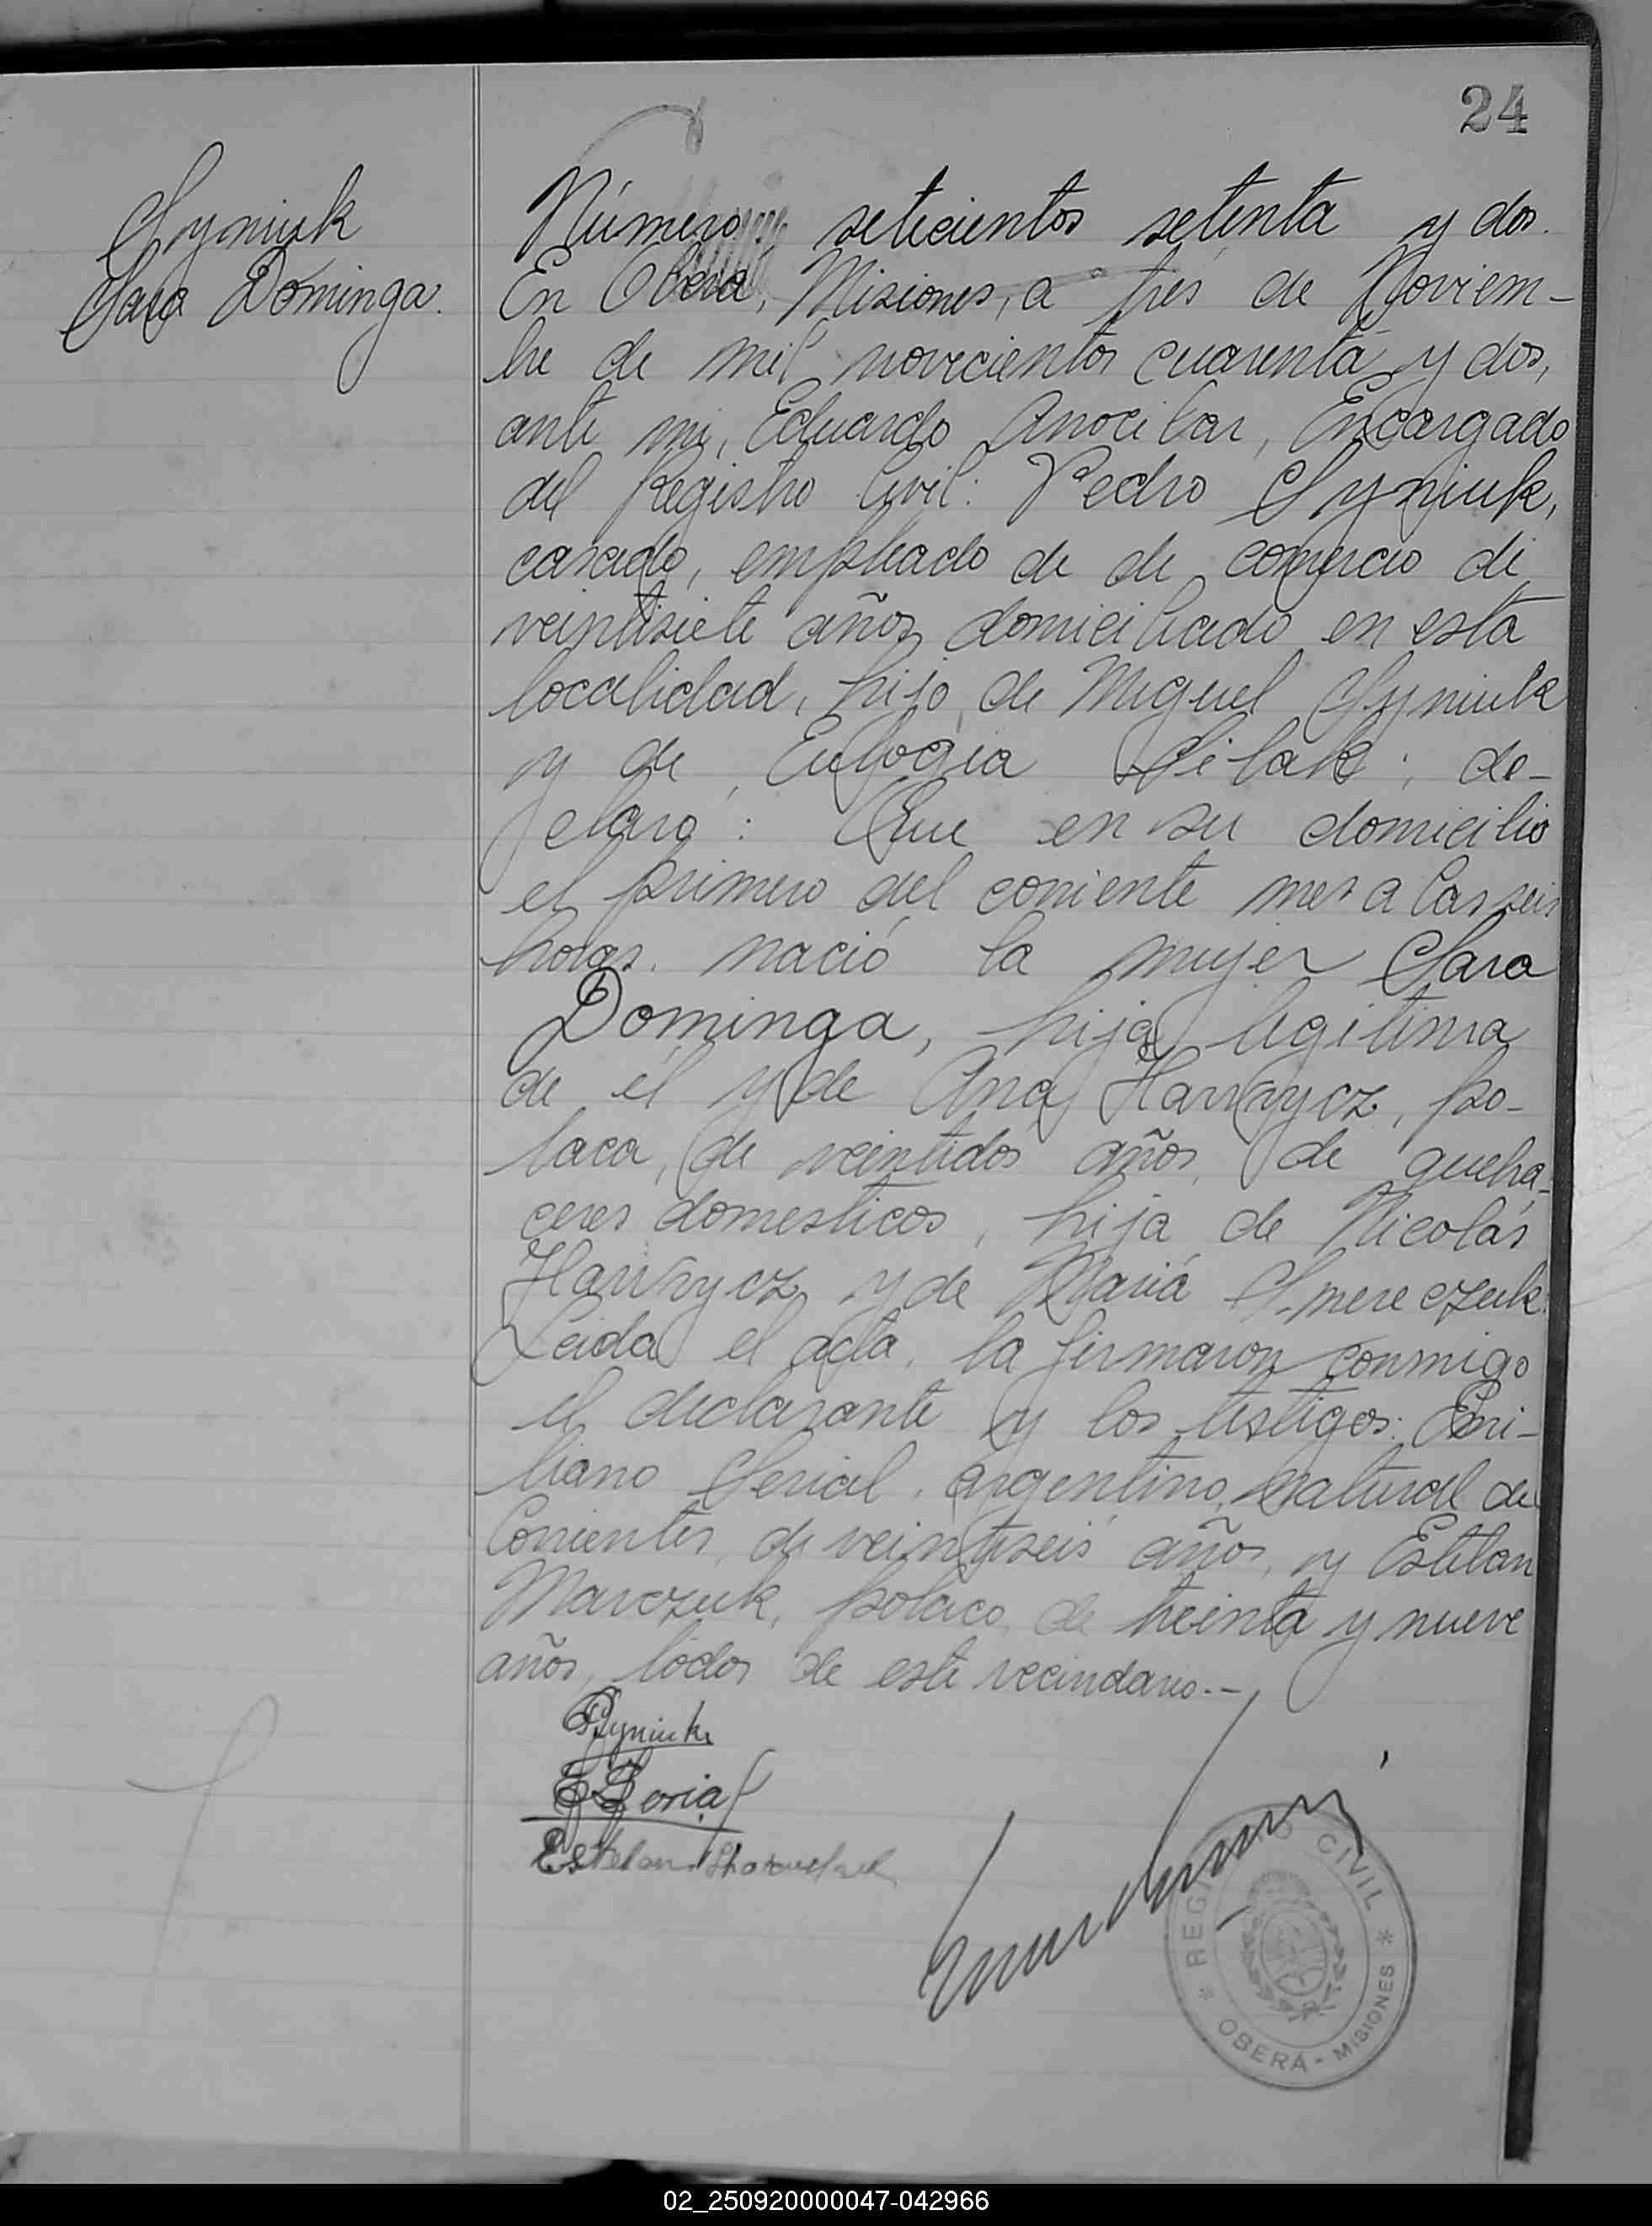 24
Syniuk
Sara Dominga.
Número: seteicientos setenta y dos.
En Oberá, Misiones, a tres de Noviem-
bre de mil novecientos cuarenta y dos,
ante mi, Eduardo Anocibar, Encargado
del Registro Civil: Pedro Syniuk,
casado, empleado de de comercio de
veintisiete años domiciliado en esta
localidad, hijo de Miguel Syniuk
y de Eulogia Silak; de-
claró: Que en su domicilio
el primero del corriente mes a las seis
horas. nació la mujer Sara
Dominga, hija legitima
de él y de Ana Hawrycz, po-
laca, de veintidos años, de queha-
ceres domesticos, hija de Nicolás
Hawrycz y de María Smereczuk.
Leida el acta, la firmaron conmigo
el declarante y los testigos: Emi-
liano Gerial, argentino, natural de
Corrientes, de veintiseis años, y Esteban
Marczuk, polaco, de treinta y nueve
años, todos de este vecindario.-
PSyniuk
Esteban
REGISTRO CIVIL
OBERÁ - MISIONES
02_250920000047-042966